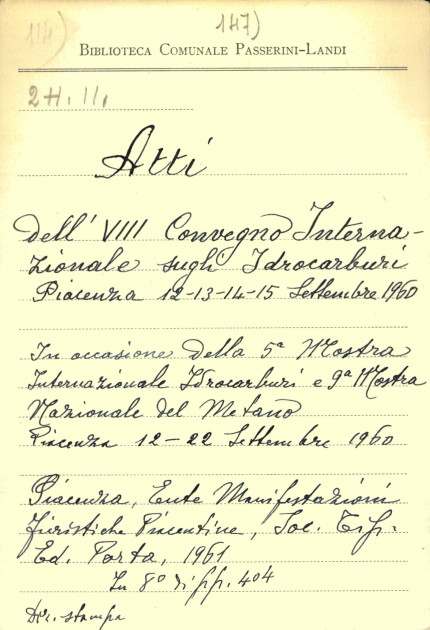 114)
147)
BIBLIOTECA COMUNALE PASSERINI-LANDI
2H. II,
Atti
dell' VIII Convegno Interna-
zionale sugli Idrocarburi
Piacenza 12-13-14-15 Settembre 1960
In occasione della 5ª Mostra
Internazionale Idrocarburi e 9ª Mostra
Nazionale del Metano
Piacenza 12-22 Settembre 1960
Piacenza, Ente Manifestazioni
Turistiche Piacentine, Soc. Tip.
Ed. Porta, 1961
In 8º di pp. 404
stampa